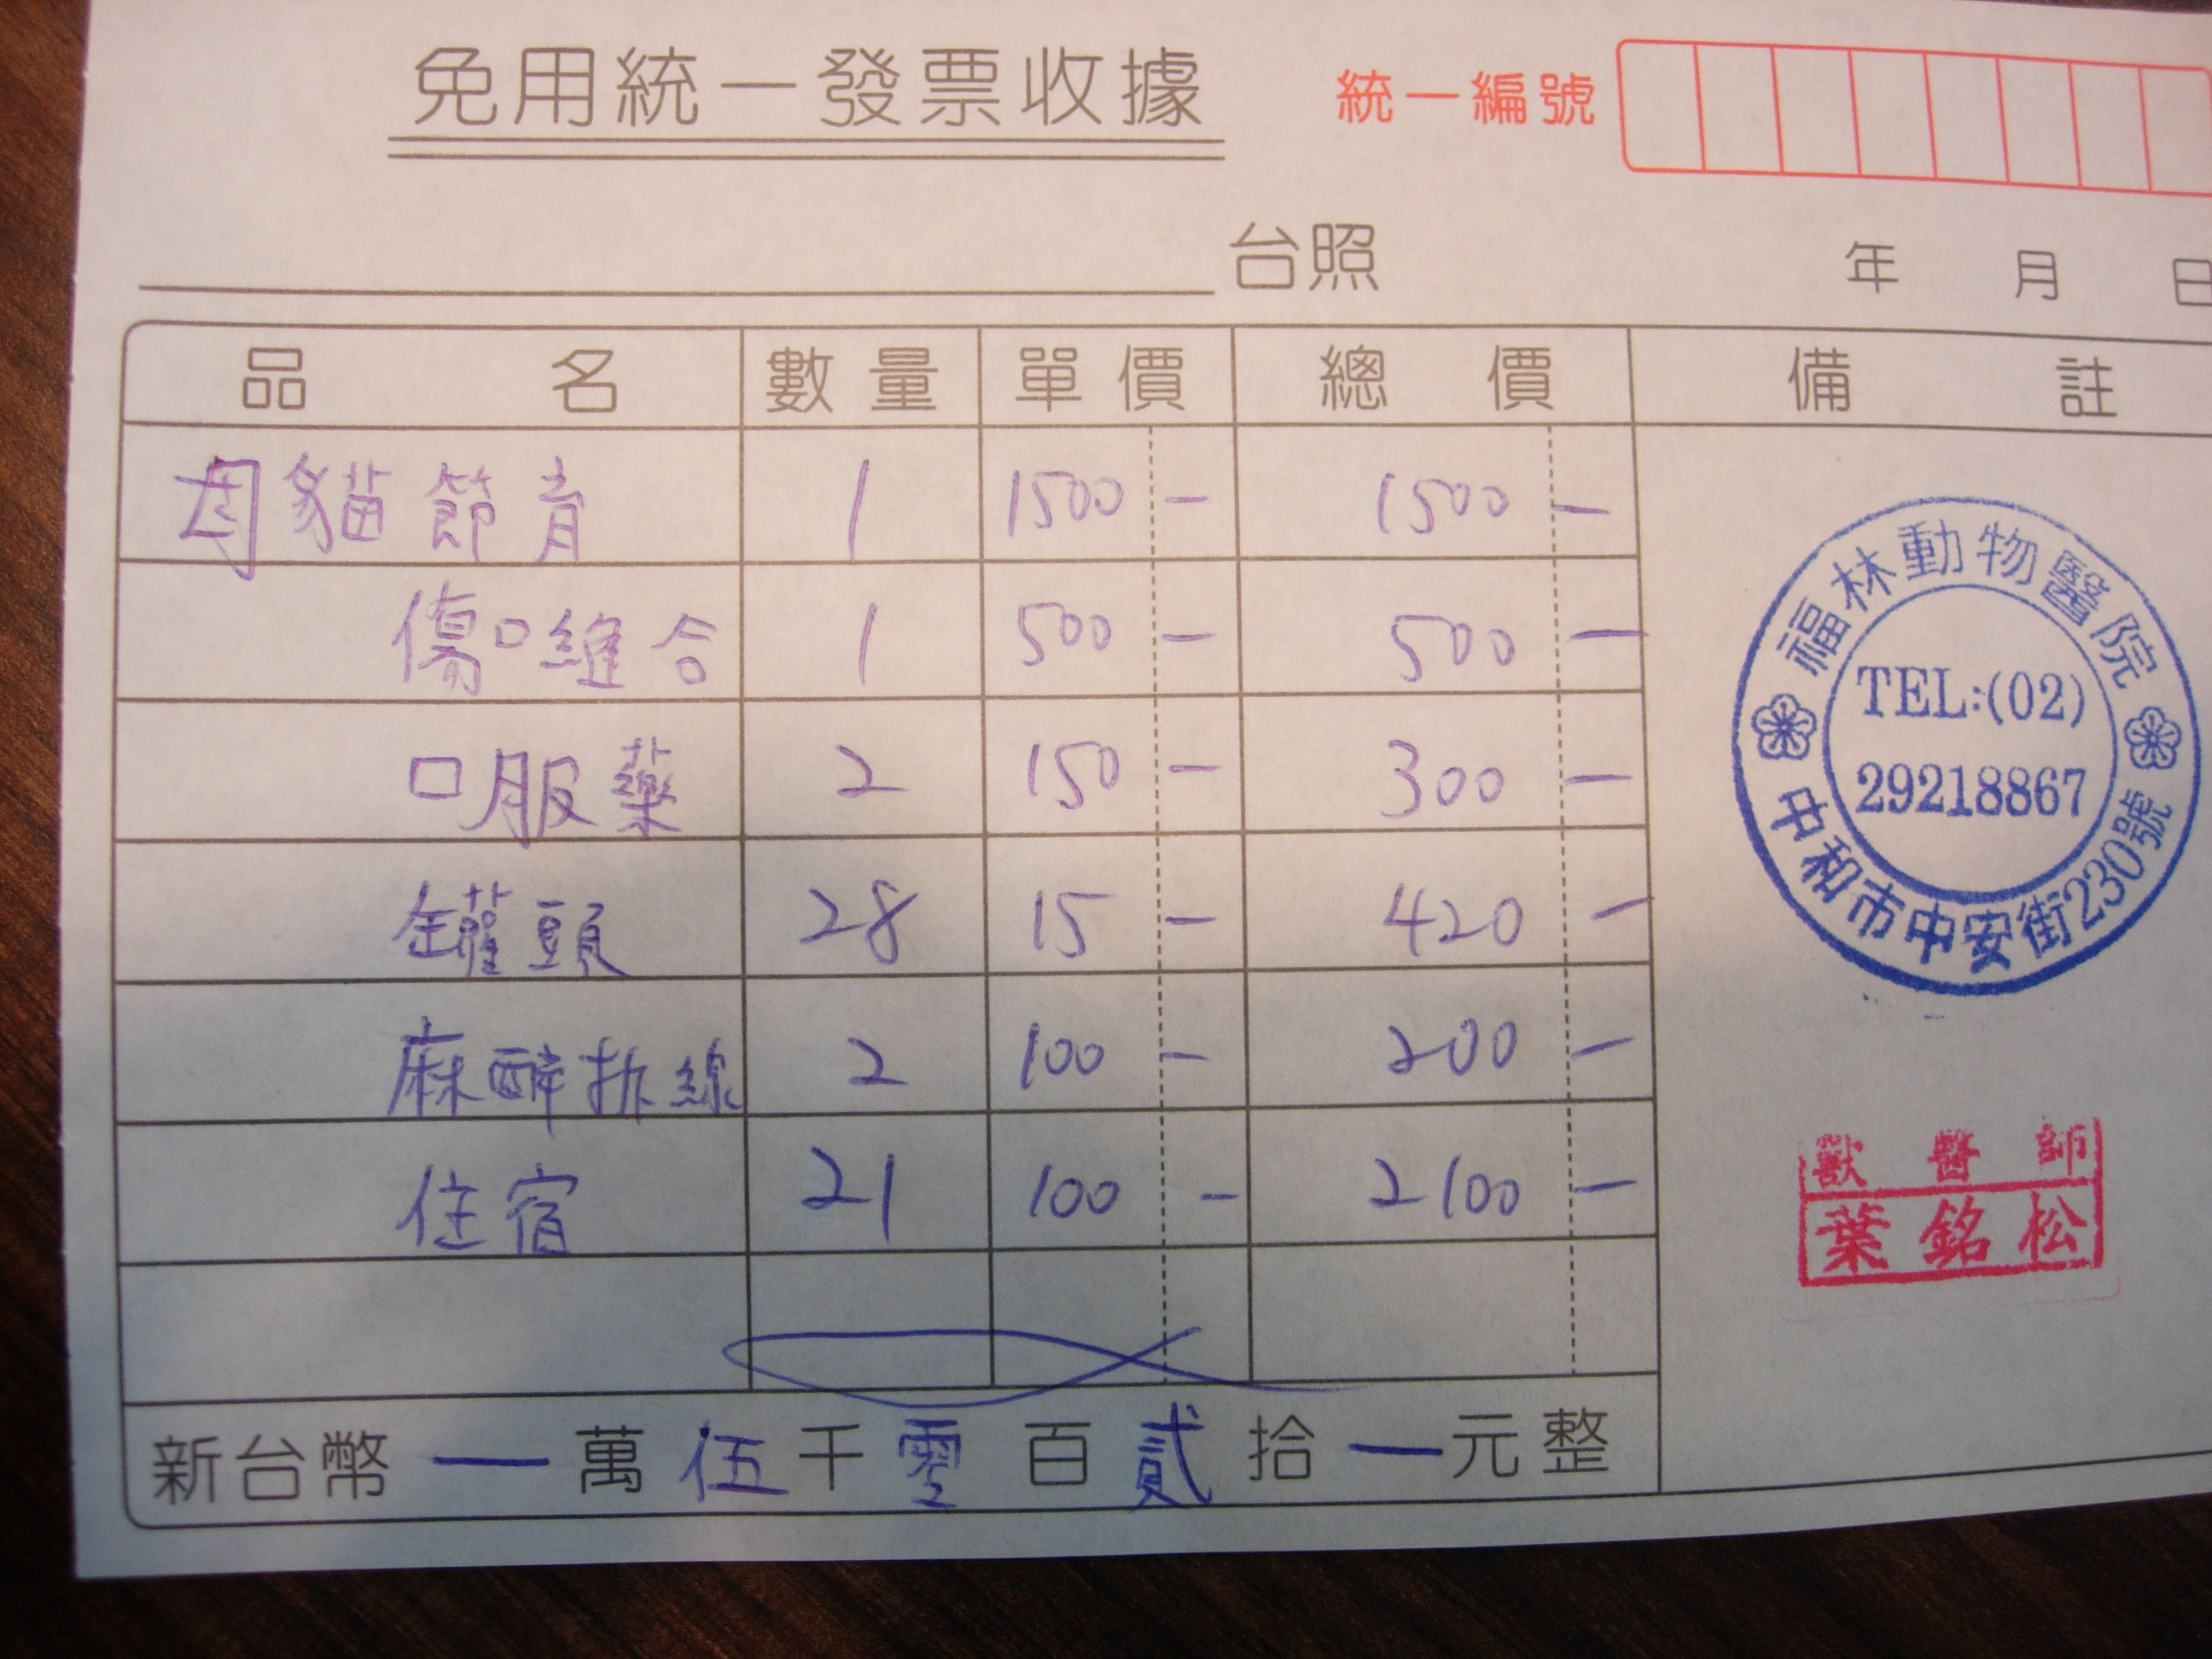 免用統一發票收據
統一編號
台照
年 月 日
品名 數量 單價 總價 備註
母貓節育 1 1500 - 1500 -
傷口縫合 1 500 - 500 -
口服藥 2 150 - 300 -
罐頭 28 15 - 420 -
麻醉拆線 2 100 - 200 -
住宿 21 100 - 2100 -
新台幣 — 萬 伍 千 零 百 貳 拾 — 元整
福林動物醫院
TEL:(02)
29218867
中和市中安街230號
獸醫師
葉銘松